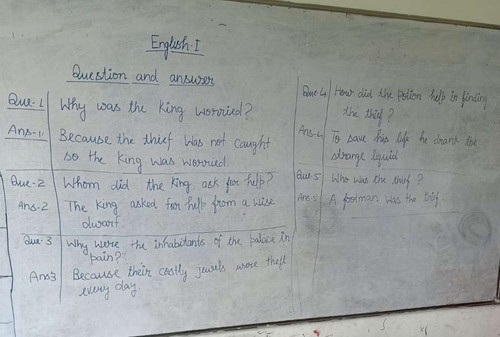 English-I
Question and answer
Que-1 Why was the King worried?
Ans-1 Because the thief was not caught
so the King was worried
Que-2 Whom did the King ask for help?
Ans-2 The King asked for help from a wise
dwarf.
Que-3 Why were the inhabitants of the palace in
pain?
Ans3 Because their costly jewels were theft
every day
Que-4 How did the Potion help in finding
the thief?
Ans-4 To save his life he drank the
strange liquid
Que-5 Who was the thief?
Ans- A footman was the thif